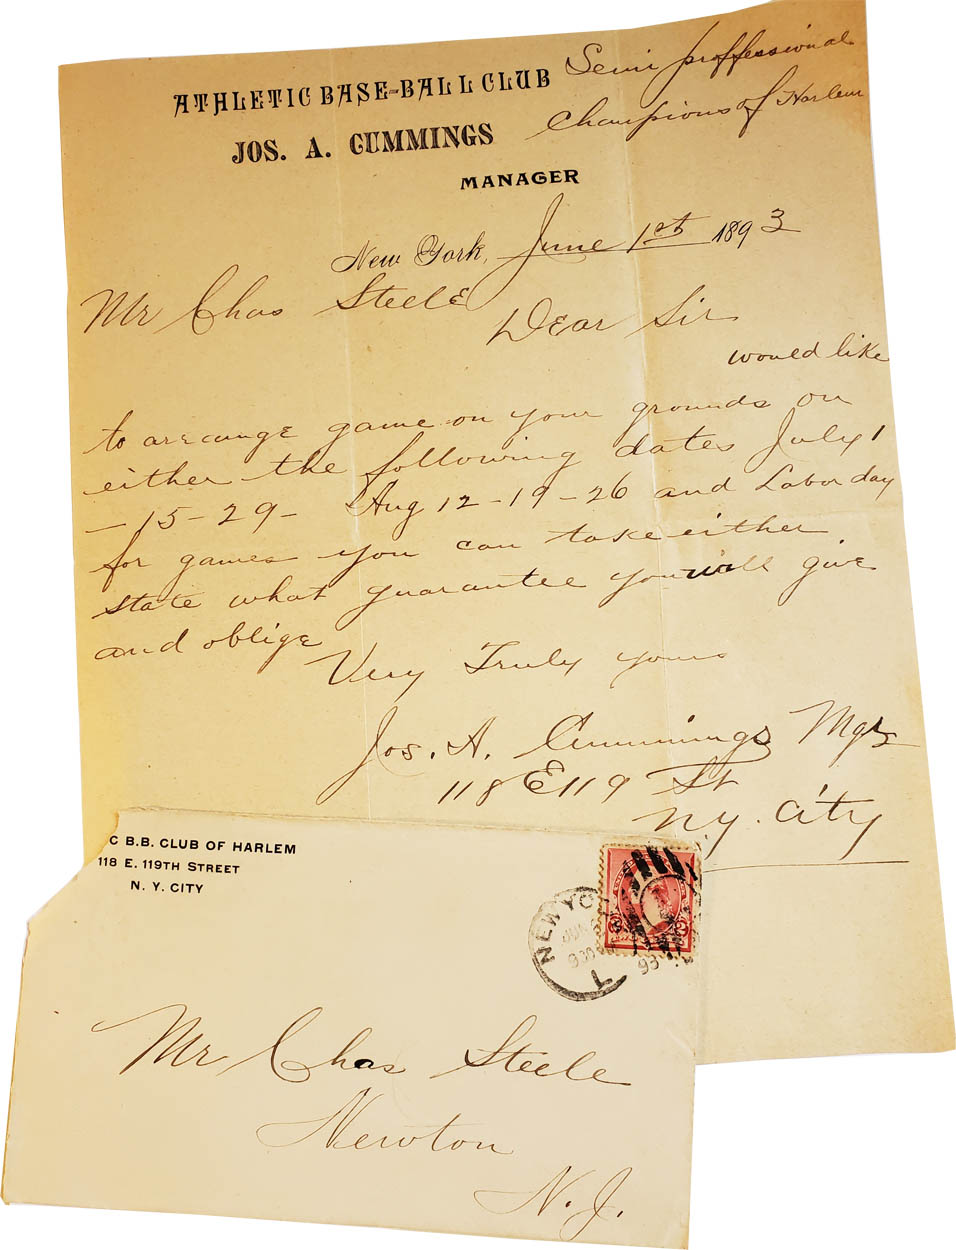 ATHLETIC BASE-BALL CLUB
Semi proffessional
Champions of Harlem
JOS. A. CUMMINGS
MANAGER
New York, June 1st 1893
Mr Chas Steele
Dear Sir
would like
to arrange game on your grounds on
either the following dates July 1
- 15 - 29 - Aug 12 - 19 - 26 and Labor day
for games you can take either
state what guarantee you will give
and oblige
Very Truly yours
Jos. A. Cummings Mgr
118 E 119 St
N.Y. City
C B.B. CLUB OF HARLEM
118 E. 119TH STREET
N. Y. CITY
NEW YO
JUN
930
L
93
Mr Chas Steele
Newton
N.J.